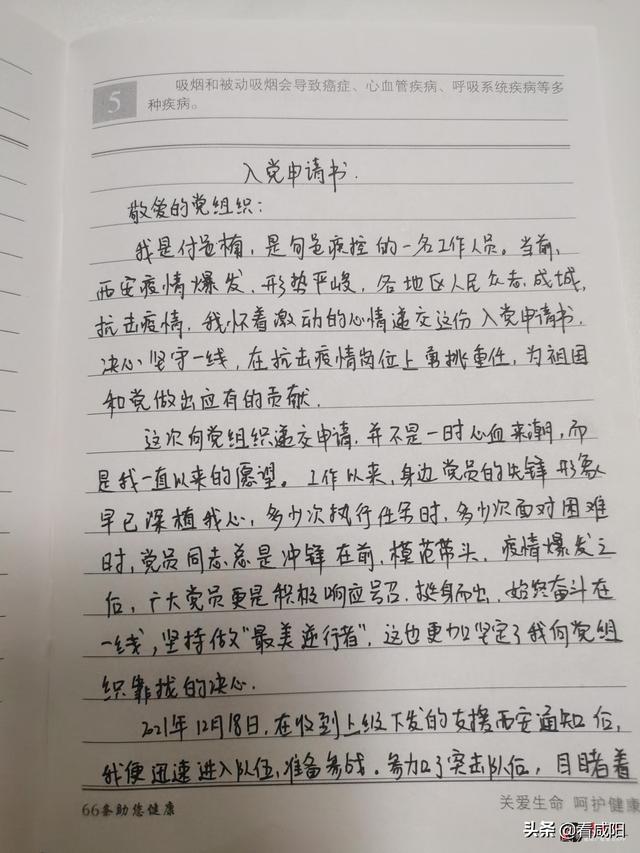 5
吸烟和被动吸烟会导致癌症、心血管疾病、呼吸系统疾病等多
种疾病。
入党申请书.
敬爱的党组织：
我是付苍楠，是旬邑疾控的一名工作人员。当前，
西安疫情爆发，形势严峻，各地区人民众志成城，
抗击疫情，我怀着激动的心情递交这份入党申请书，
决心坚守一线，在抗击疫情岗位上勇挑重任，为祖国
和党做出应有的贡献.
这次向党组织递交申请，并不是一时心血来潮，而
是我一直以来的愿望。工作以来，身边党员的先锋形象
早已深植我心，多少次执行任务时，多少次面对困难
时，党员同志总是冲锋在前，模范带头，疫情爆发之
后，广大党员更是积极响应号召，挺身而出，始终奋斗在
一线，坚持做“最美逆行者”，这也更加坚定了我向党组
织靠拢的决心.
2021年12月18日，在收到上级下发的支援西安通知后，
我便迅速进入队伍，准备参战。参加了突击队伍，目睹着
66条助您健康
关爱生命 呵护健康
头条 @看咸阳